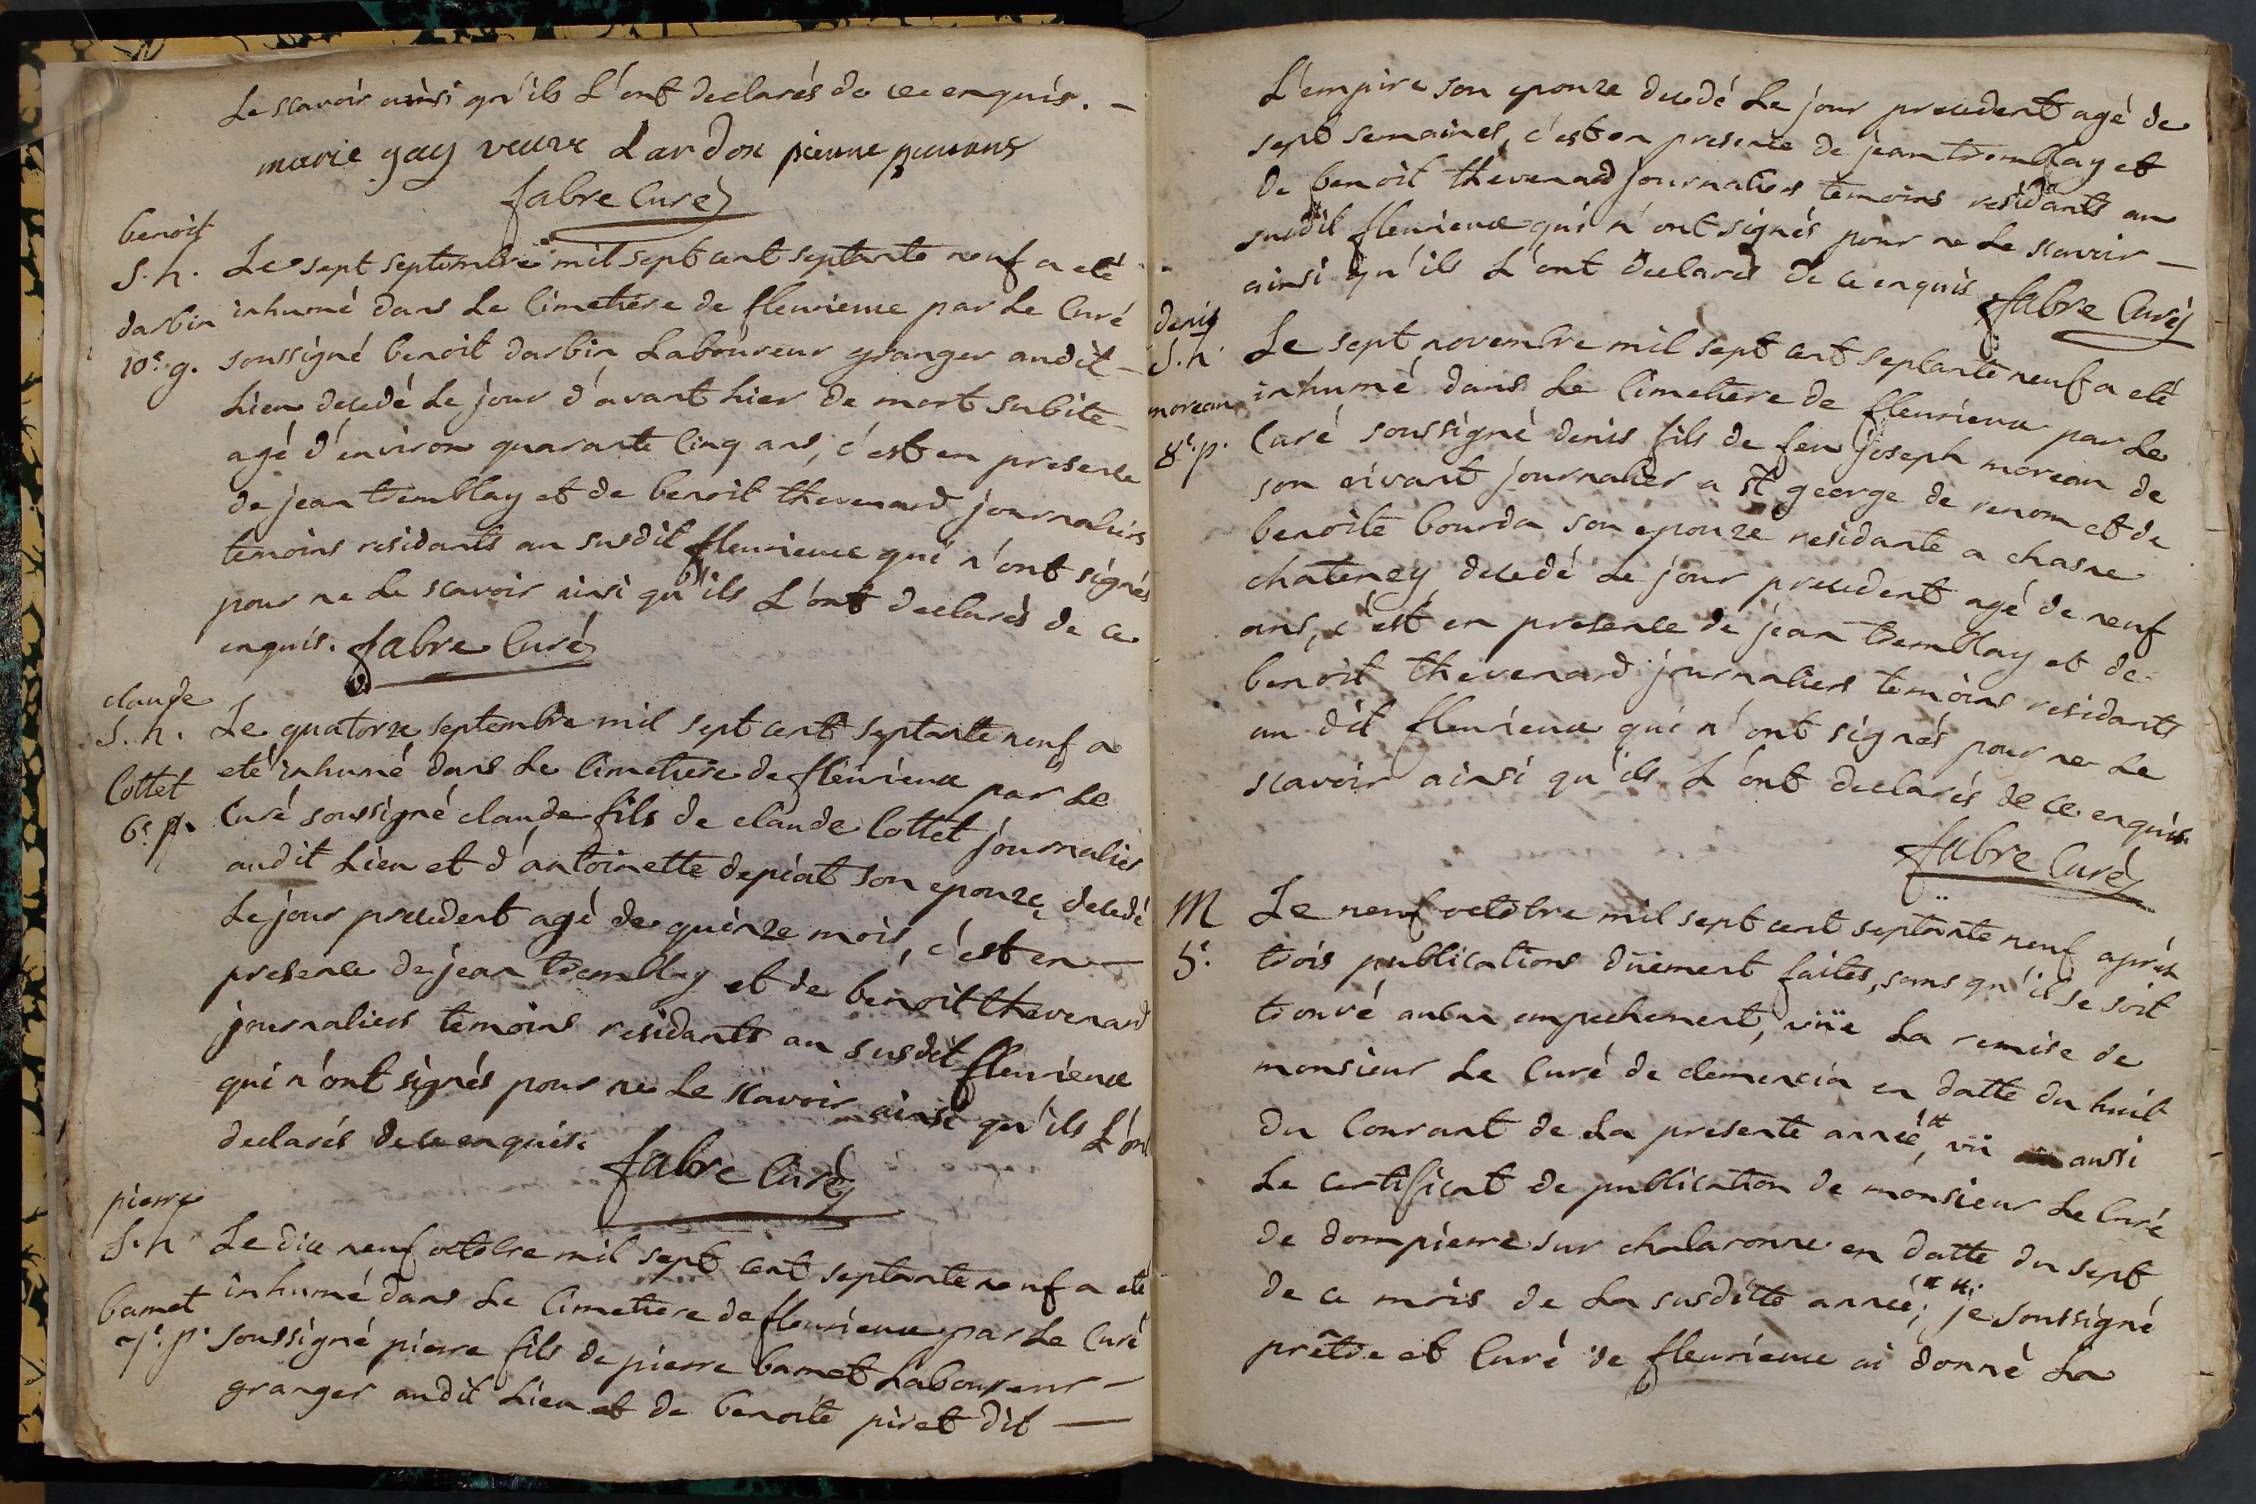 Le scavoir ainsi qu'ils L'ont declarés de ce enquis. —
marie gay veuve Lardon pierre
fabre Curé
benoit
S. h.
darbin
10e. g.
Le sept septembre mil sept cent septante neuf a eté
inhumé dans Le Cimetiere de fleurieux par Le Curé
soussigné benoit darbin Laboureur granger audit —
Lieu decedé Le jour d'avant hier de mort subite —
agé d'environ quarante Cinq ans, c'est en presence
de jean tremblay et de benoit thevenard journaliers
temoins residants au susdit fleurieux qui n'ont signés
pour ne Le scavoir ainsi qu'ils L'ont declarés de ce
enquis. fabre Curé
claude
S. h.
Cottet
6e. p.
Le quatorze septembre mil sept cent septante neuf a
eté inhumé dans Le Cimetiere de fleurieux par Le
Curé soussigné claude fils de claude Cottet journalier
audit Lieu et d'antoinette depiat son epouze, decedé
Le jour precedent agé de quinze mois, c'est en —
presence de jean tremblay et de benoit thevenard
journaliers temoins residants au susdit fleurieux
qui n'ont signés pour ne Le scavoir ainsi qu'ils L'ont
declarés de ce enquis.
fabre Curé
pierre
S. h
bamet
7e. p.
Le dix neuf octobre mil sept cent septante neuf a eté
inhumé dans Le Cimetiere de fleurieux par Le Curé
soussigné pierre fils de pierre bamet Laboureur —
granger audit Lieu et de benoite piret dit —
L'empire son epouze decedé Le jour precedent agé de
sept semaines, c'est en presence de jean tremblay et
de benoit thevenard journaliers temoins residants au
susdit fleurieux qui n'ont signés pour ne Le scavoir —
ainsi qu'ils L'ont declarés de ce enquis fabre Curé
denis
S. h.
moreau
8e. p.
Le sept novembre mil sept cent septante neuf a eté
inhumé dans Le Cimetiere de fleurieux par Le
Curé soussigné denis fils de feu joseph moreau de
son vivant journalier a st george de renom et de
benoite bourda son epouze residante a chasne
chateney decedé Le jour precedent agé de neuf
ans, c'est en presence de jean tremblay et de
benoit thevenard journaliers temoins residants
au dit fleurieux qui n'ont signés pour ne Le
scavoir ainsi qu'ils L'ont declarés de ce enquis
fabre Curé
M
5e.
Le neuf octobre mil sept cent septante neuf aprés
trois publications düement faites, sans qu'il se soit
trouvé aucun empechement, vüe La remise de
monsieur Le Curé de clemencia en datte du huit
du Courant de La presente année, vü aussi
Le certificat de publication de monsieur Le Curé
de dompierre sur chalaronne en datte du sept
de ce mois de La susditte année; je soussigné
prêtre et Curé de fleurieux ai donné La